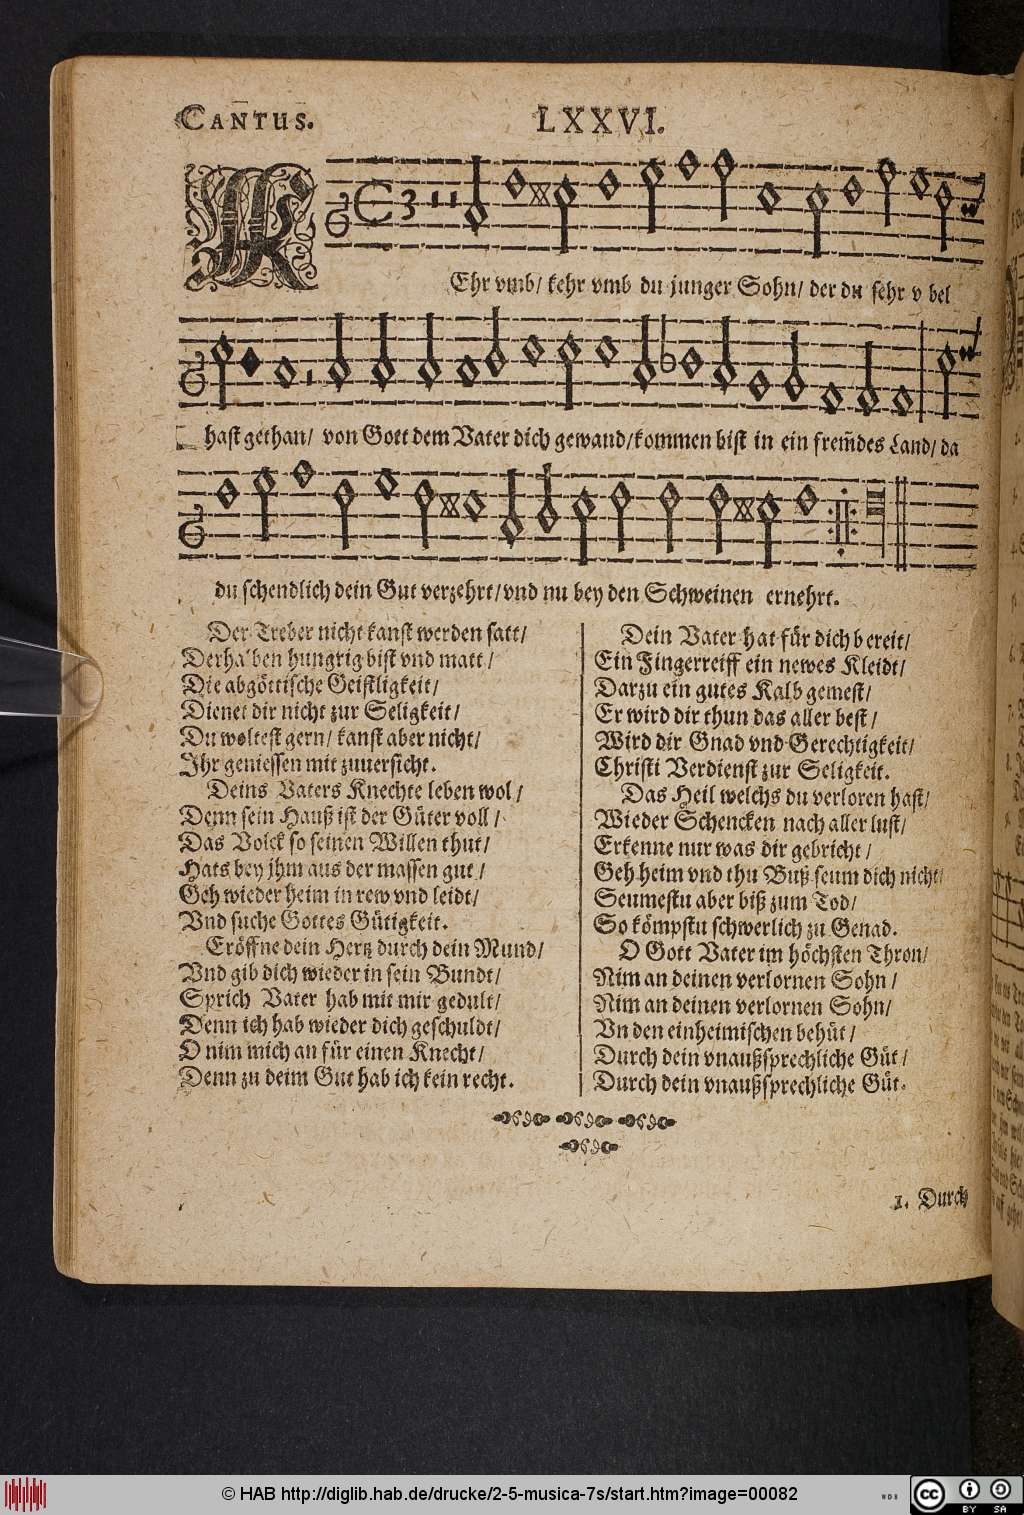 CANTUS.
LXXVI.
KEhr vmb/ kehr vmb du junger Sohn/ der du sehr v bel
hast gethan/ von Gott dem Vater dich gewand/kommen bist in ein frem̃des Land/ da
du schendlich dein Gut verzehrt/vnd nu bey den Schweinen ernehrt.
Der Treber nicht kanst werden satt/
Derhalben hungrig bist vnd matt/
Die abgöttische Geistligkeit/
Dienet dir nicht zur Seligkeit/
Du woltest gern/ kanst aber nicht/
Ihr geniessen mit zuuersicht.
Deins Vaters Knechte leben wol/
Denn sein Hauß ist der Güter voll/
Das Volck so seinen Willen thut/
Hats bey jhm aus der massen gut/
Geh wieder heim in rew vnd leidt/
Vnd suche Gottes Gütigkeit.
Eröffne dein Hertz durch dein Mund/
Vnd gib dich wieder in sein Bundt/
Sprich Vater hab mit mir gedult/
Denn ich hab wieder dich geschuldt/
O nim mich an für einen Knecht/
Denn zu deim Gut hab ich kein recht.
Dein Vater hat für dich bereit/
Ein Fingerreiff ein newes Kleidt/
Darzu ein gutes Kalb gemest/
Er wird dir thun das aller best/
Wird dir Gnad vnd Gerechtigkeit/
Christi Verdienst zur Seligkeit.
Das Heil welchs du verloren hast/
Wieder Schencken nach aller lust/
Erkenne nur was dir gebricht/
Geh heim vnd thu Buß seum dich nicht/
Seumestu aber biß zum Tod/
So kömpstu schwerlich zu Genad.
O Gott Vater im höchsten Thron/
Nim an deinen verlornen Sohn/
Nim an deinen verlornen Sohn/
Vn den einheimischen behüt/
Durch dein vnaußsprechliche Güt/
Durch dein vnaußsprechliche Güt.
1. Durch
© HAB http://diglib.hab.de/drucke/2-5-musica-7s/start.htm?image=00082
WDB
cc BY SA